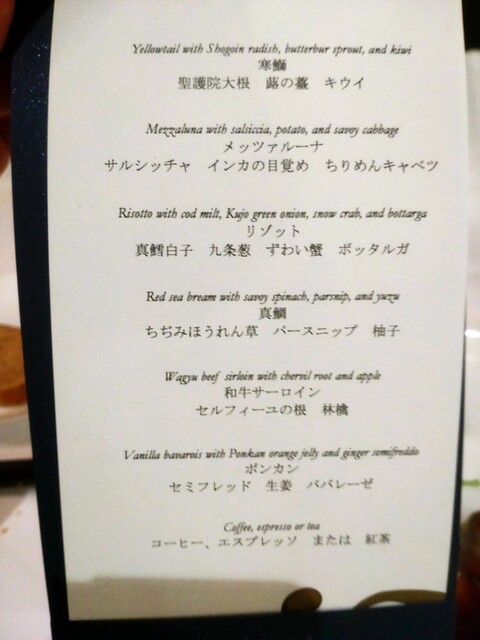 Yellowtail with Shogoin radish, butterbur sprout, and kiwi
寒鰤
聖護院大根 蕗の薹 キウイ
Mezzaluna with salsiccia, potato, and savoy cabbage
メッツァルーナ
サルシッチャ インカの目覚め ちりめんキャベツ
Risotto with cod milt, Kujo green onion, snow crab, and bottarga
リゾット
真鱈白子 九条葱 ずわい蟹 ボッタルガ
Red sea bream with savoy spinach, parsnip, and yuzu
真鯛
ちぢみほうれん草 パースニップ 柚子
Wagyu beef sirloin with chervil root and apple
和牛サーロイン
セルフィーユの根 林檎
Vanilla bavarois with Ponkan orange jelly and ginger semifreddo
ポンカン
セミフレッド 生姜 ババレーゼ
Coffee, espresso or tea
コーヒー、エスプレッソ または 紅茶